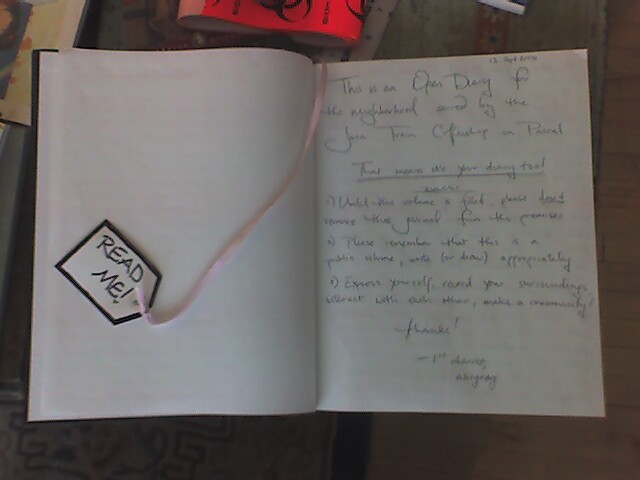 READ
ME!
This is an Open Diary for
the neighborhood and by the
Java Train Coffeeshop on Pascal
That means it's your diary too!
1) Until this volume is filled, please don't
remove this journal from the premises
2) Please remember that this is a
public volume, write (or draw) appropriately
3) Express yourself, record your surroundings,
interact with each other, make a community!
Thanks!
- 1st diarist,